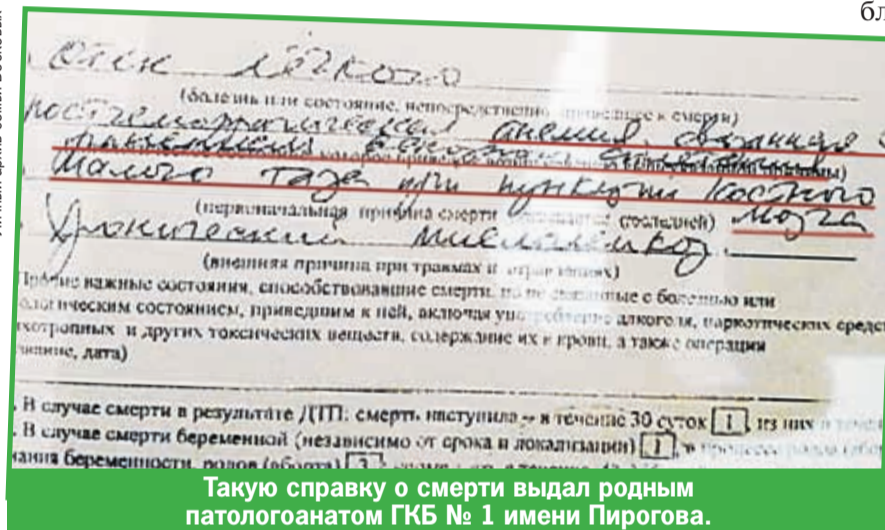 бл
Отек лёгкого
(болезнь или состояние, непосредственно приведшее к смерти)
постгеморрагическая анемия, связанная с
ранением
малого таза при пункции костного
(первоначальная причина смерти последней) мозга
Хронический миелолейкоз.
(внешняя причина при травмах и отравлениях)
Прочие важные состояния, способствовавшие смерти, но не связанные с болезнью или
логическим состоянием, приведшим к ней, включая употребление алкоголя, наркотических средств
хотропных и других токсических веществ, содержание их в крови, а также операции
дата)
. В случае смерти в результате ДТП: смерть наступила – в течение 30 суток 1, из них в
. В случае смерти беременной (независимо от срока и локализации) 1, в процессе родов
беременности, родов (аборта) 3
Такую справку о смерти выдал родным
патологоанатом ГКБ № 1 имени Пирогова.